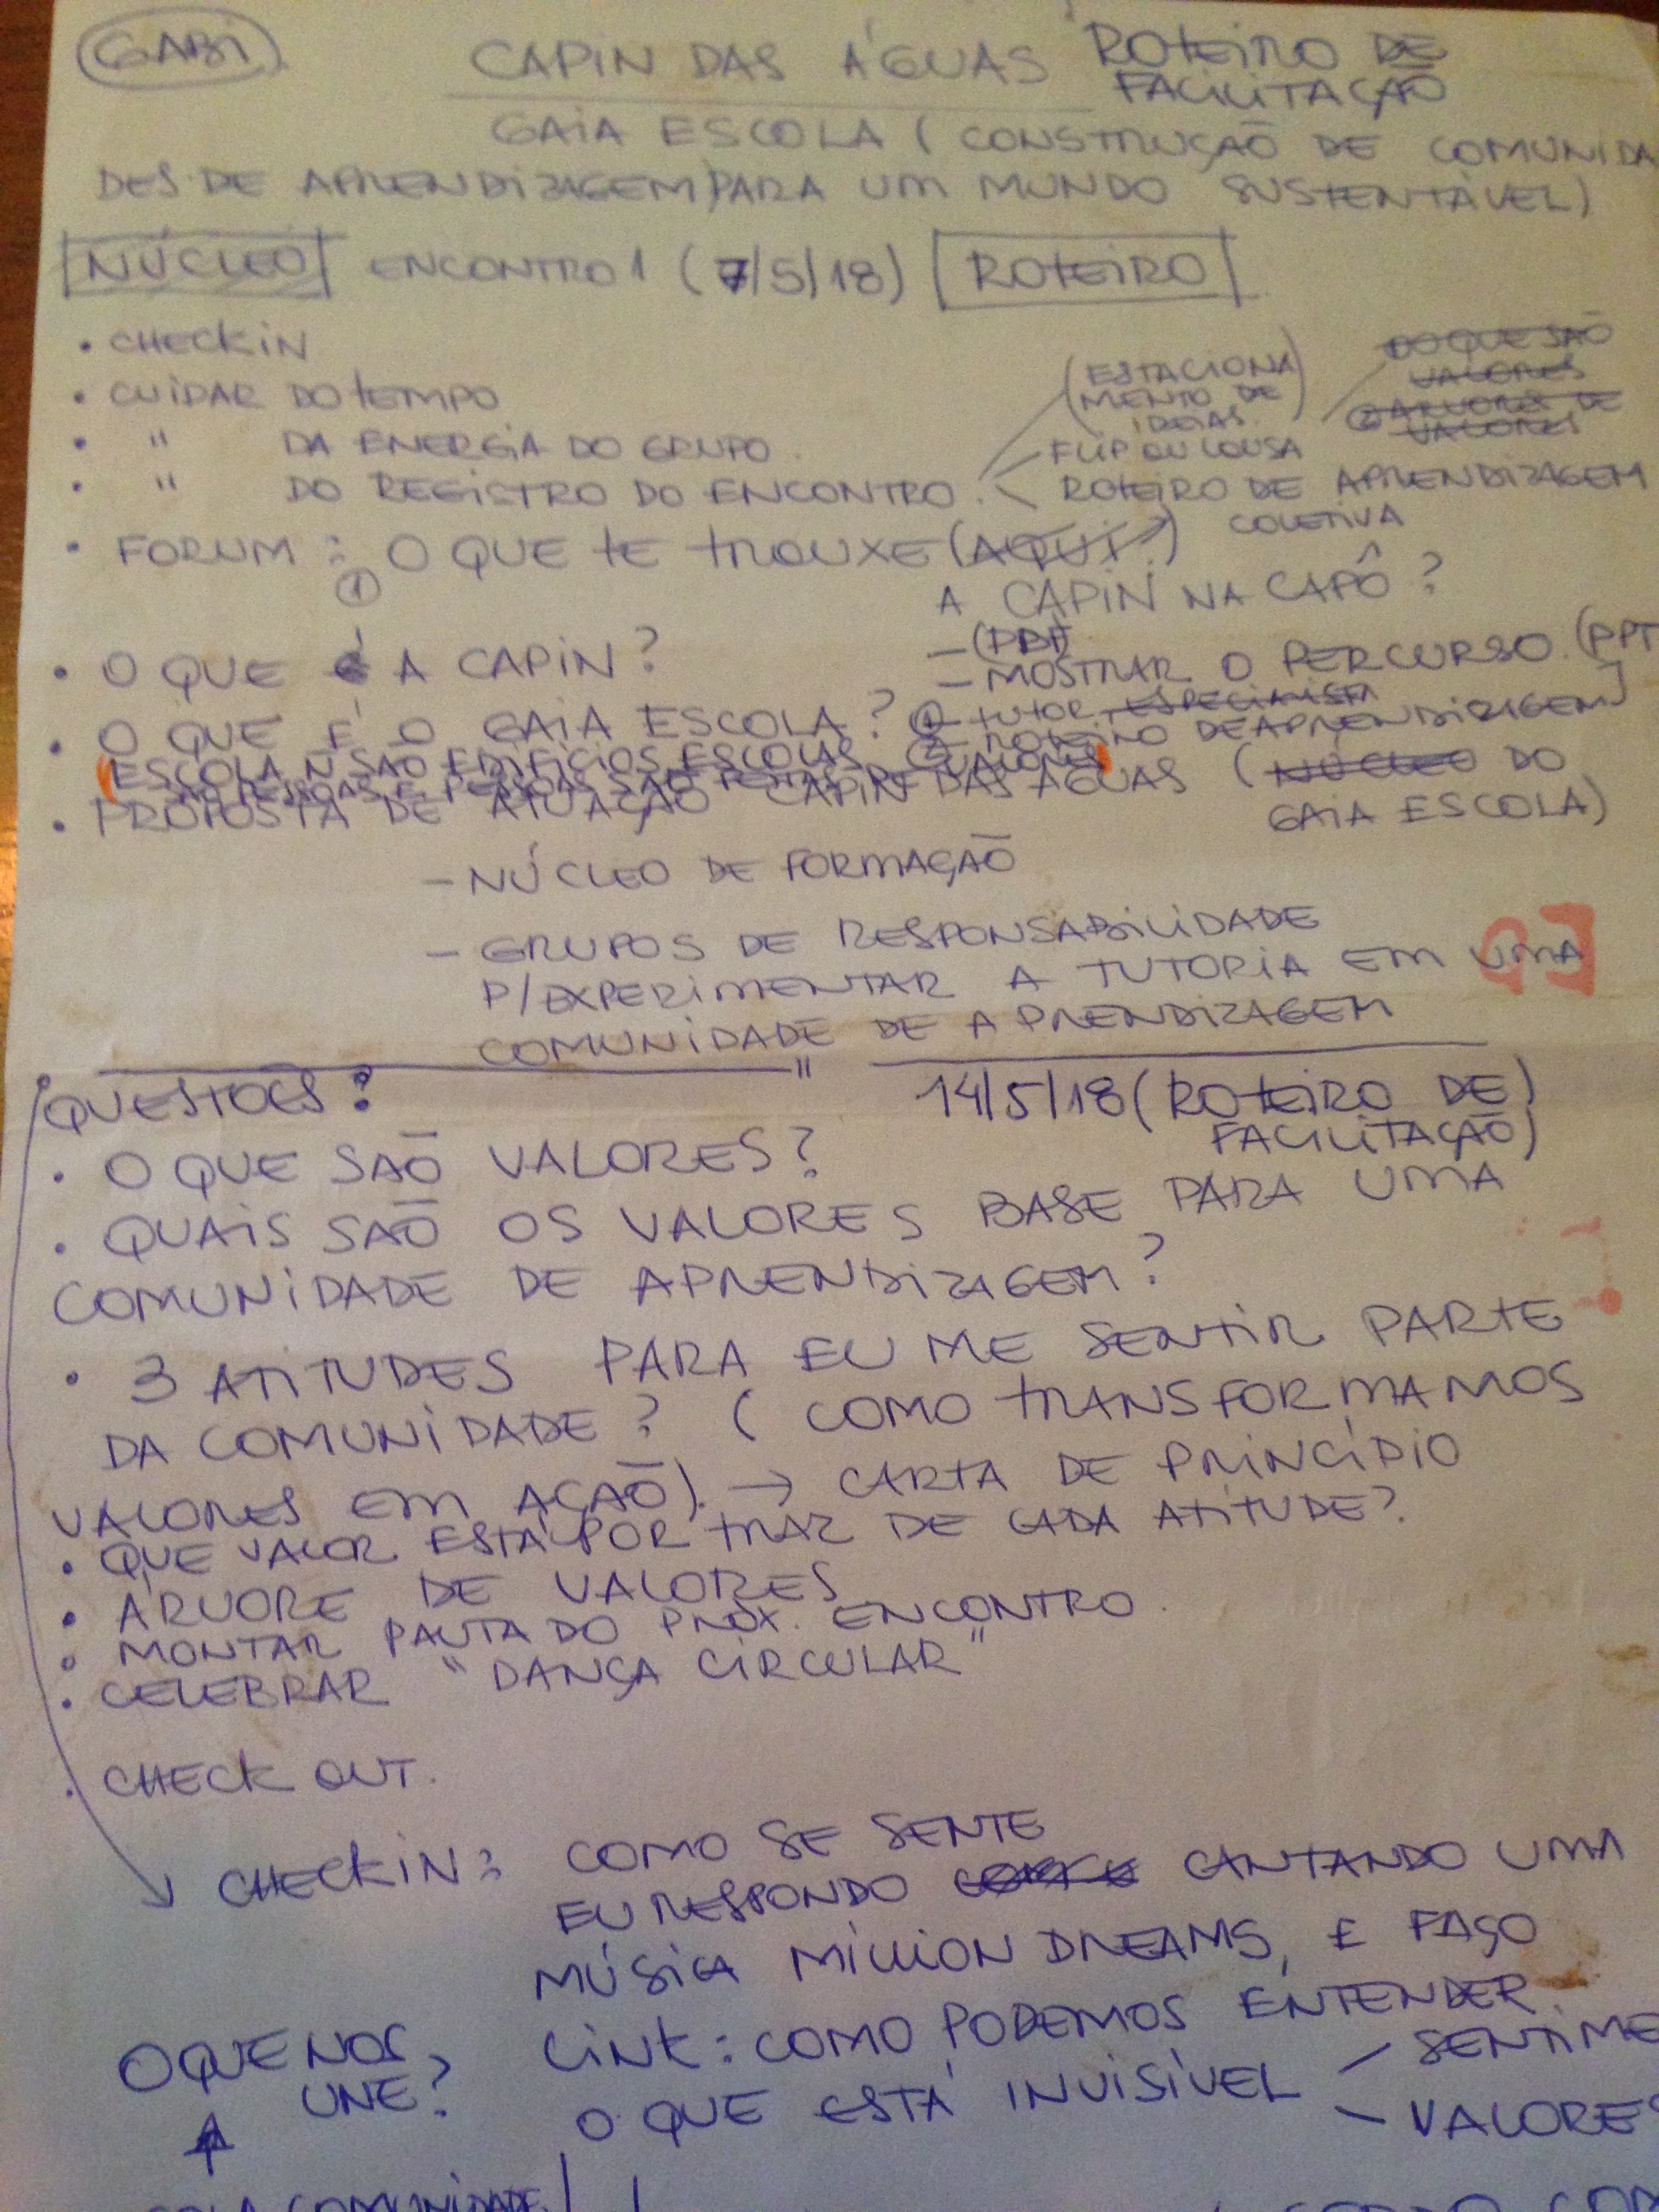 GABI
CAPIN DAS ÁGUAS ROTEIRO DE
FACILITAÇÃO
GAIA ESCOLA (CONSTRUÇÃO DE COMUNIDA
DES DE APRENDIZAGEM PARA UM MUNDO SUSTENTÁVEL)
NÚCLEO ENCONTRO 1 (7/5/18) ROTEIRO
• CHECKIN
• CUIDAR DO TEMPO
• " DA ENERGIA DO GRUPO.
• " DO REGISTRO DO ENCONTRO.
(ESTACIONA
MENTO DE
IDEIAS)
DO QUE SÃO
VALORES
② ÁRVORES DE
VALORES
FLIP OU LOUSA
ROTEIRO DE APRENDIZAGEM
COLETIVA
• FORUM: O QUE TE TROUXE (AQUI?)
①
A CAPIN NA CAPÔ?
• O QUE É A CAPIN?
– (PDF)
– MOSTRAR O PERCURSO (PPT
• O QUE É O GAIA ESCOLA? ① – TUTOR ESPECIALISTA
② – ROTEIRO DE APRENDIZAGEM]
③ VALORES
(ESCOLA Ñ SÃO EDIFÍCIOS ESCOLAS
SÃO PESSOAS E PESSOAS SÃO FEITAS DE
• PROPOSTA DE ATUAÇÃO CAPIN DAS ÁGUAS (NÚCLEO DO
GAIA ESCOLA)
– NÚCLEO DE FORMAÇÃO
– GRUPOS DE RESPONSABILIDADE
P/ EXPERIMENTAR A TUTORIA EM UMA
COMUNIDADE DE APRENDIZAGEM
"
• QUESTÕES: 14/5/18 (ROTEIRO DE
FACILITAÇÃO)
• O QUE SÃO VALORES?
• QUAIS SÃO OS VALORES BASE PARA UMA
COMUNIDADE DE APRENDIZAGEM?
• 3 ATITUDES PARA EU ME SENTIR PARTE
DA COMUNIDADE? (COMO TRANSFORMAMOS
VALORES EM AÇÃO). → CARTA DE PRINCÍPIO
• QUE VALOR ESTÁ POR TRAZ DE CADA ATITUDE?
• ÁRVORE DE VALORES
• MONTAR PAUTA DO PROX. ENCONTRO.
• CELEBRAR "DANÇA CIRCULAR"
• CHECK OUT.
CHECKIN: COMO SE SENTE
EU RESPONDO CANTANDO UMA
MÚSICA MILLION DREAMS, E FAÇO
LINK: COMO PODEMOS ENTENDER
O QUE ESTÁ INVISÍVEL – SENTIME
– VALORES
O QUE NOS
UNE?
COMUNIDADE